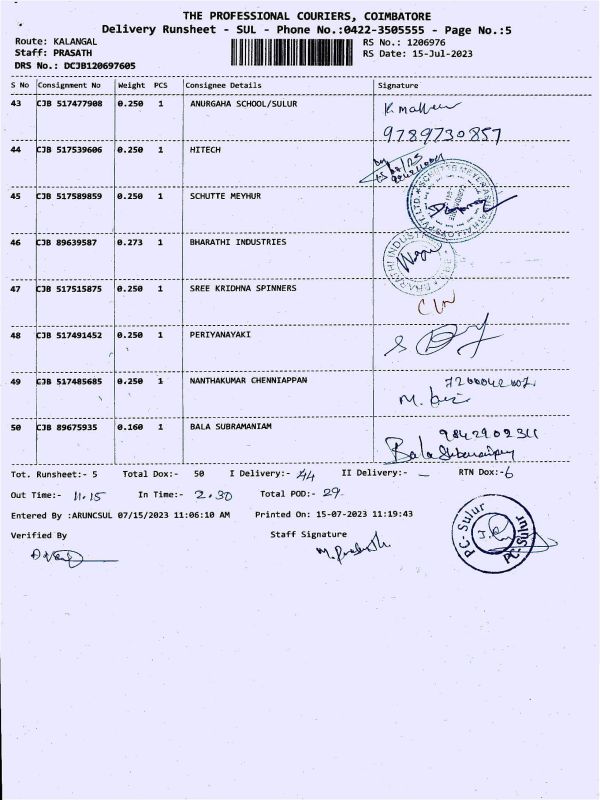 THE PROFESSIONAL COURIERS, COIMBATORE
Delivery Runsheet - SUL - Phone No.:0422-3505555 - Page No.:5
Route: KALANGAL
RS No.: 1206976
Staff: PRASATH
RS Date: 15-Jul-2023
DRS No.: DCJB120697605
S No Consignment No Weight PCS Consignee Details Signature
43 CJB 517477908 0.250 1 ANURGAHA SCHOOL/SULUR
9789730857
44 CJB 517539606 0.250 1 HITECH
45 CJB 517589859 0.250 1 SCHUTTE MEYHUR
46 CJB 89639587 0.273 1 BHARATHI INDUSTRIES
47 CJB 517515875 0.250 1 SREE KRIDHNA SPINNERS
48 CJB 517491452 0.250 1 PERIYANAYAKI
49 CJB 517485685 0.250 1 NANTHAKUMAR CHENNIAPPAN
50 CJB 89675935 0.160 1 BALA SUBRAMANIAM
Bala
Tot. Runsheet:- 5 Total Dox:- 50 I Delivery:- 44 II Delivery:- — RTN Dox:-6
Out Time:- 11.15 In Time:- 2.30 Total POD:- 29.
Entered By :ARUNCSUL 07/15/2023 11:06:10 AM Printed On: 15-07-2023 11:19:43
Verified By Staff Signature
PC-Sulur
PC-Sulur